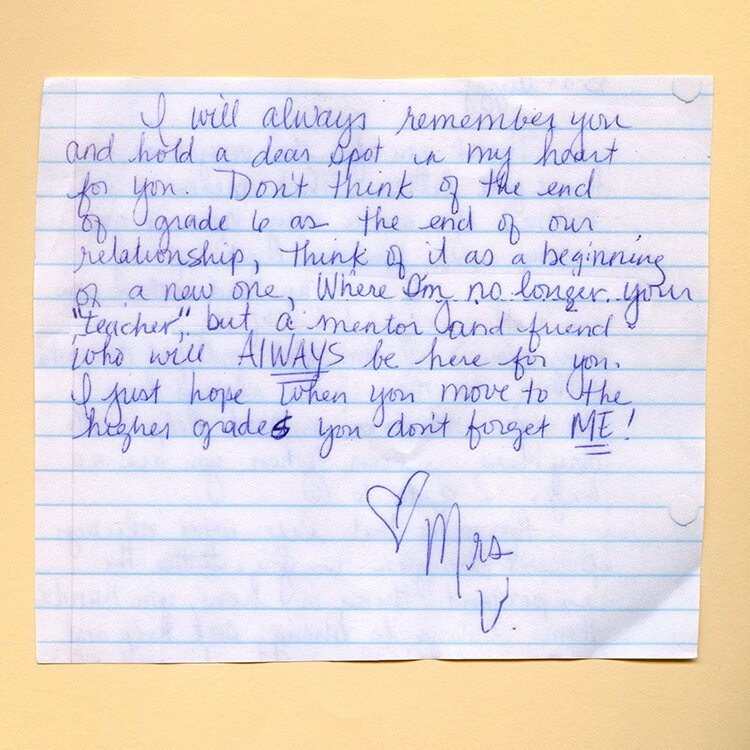 I will always remember you
and hold a dear spot in my heart
for you. Don't think of the end
of grade 6 as the end of our
relationship, think of it as a beginning
of a new one, Where I'm no longer your
"teacher", but a mentor and friend
who will AlWAYS be here for you.
I just hope when you move to the
higher grades you don't forget ME!
Mrs
V.